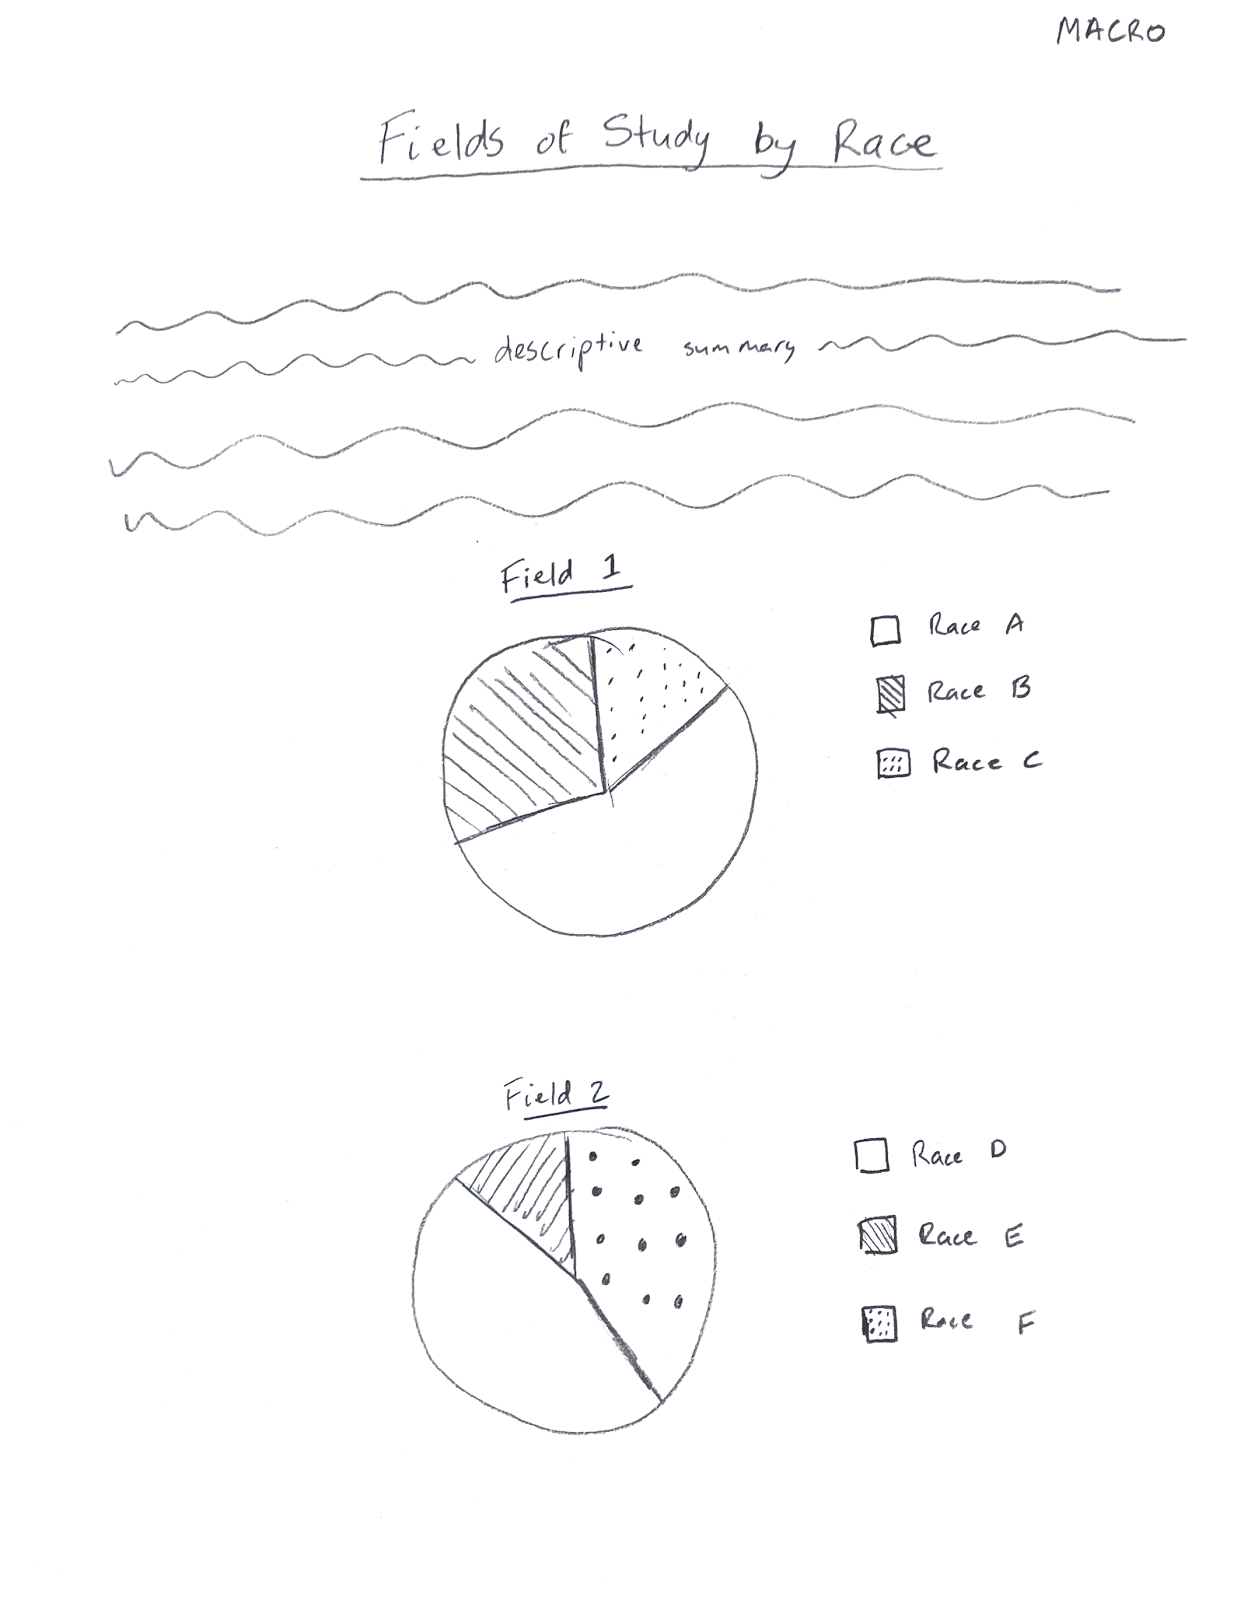 MACRO
Fields of Study by Race
descriptive summary
Field 1
Race A
Race B
Race C
Field 2
Race D
Race E
Race F